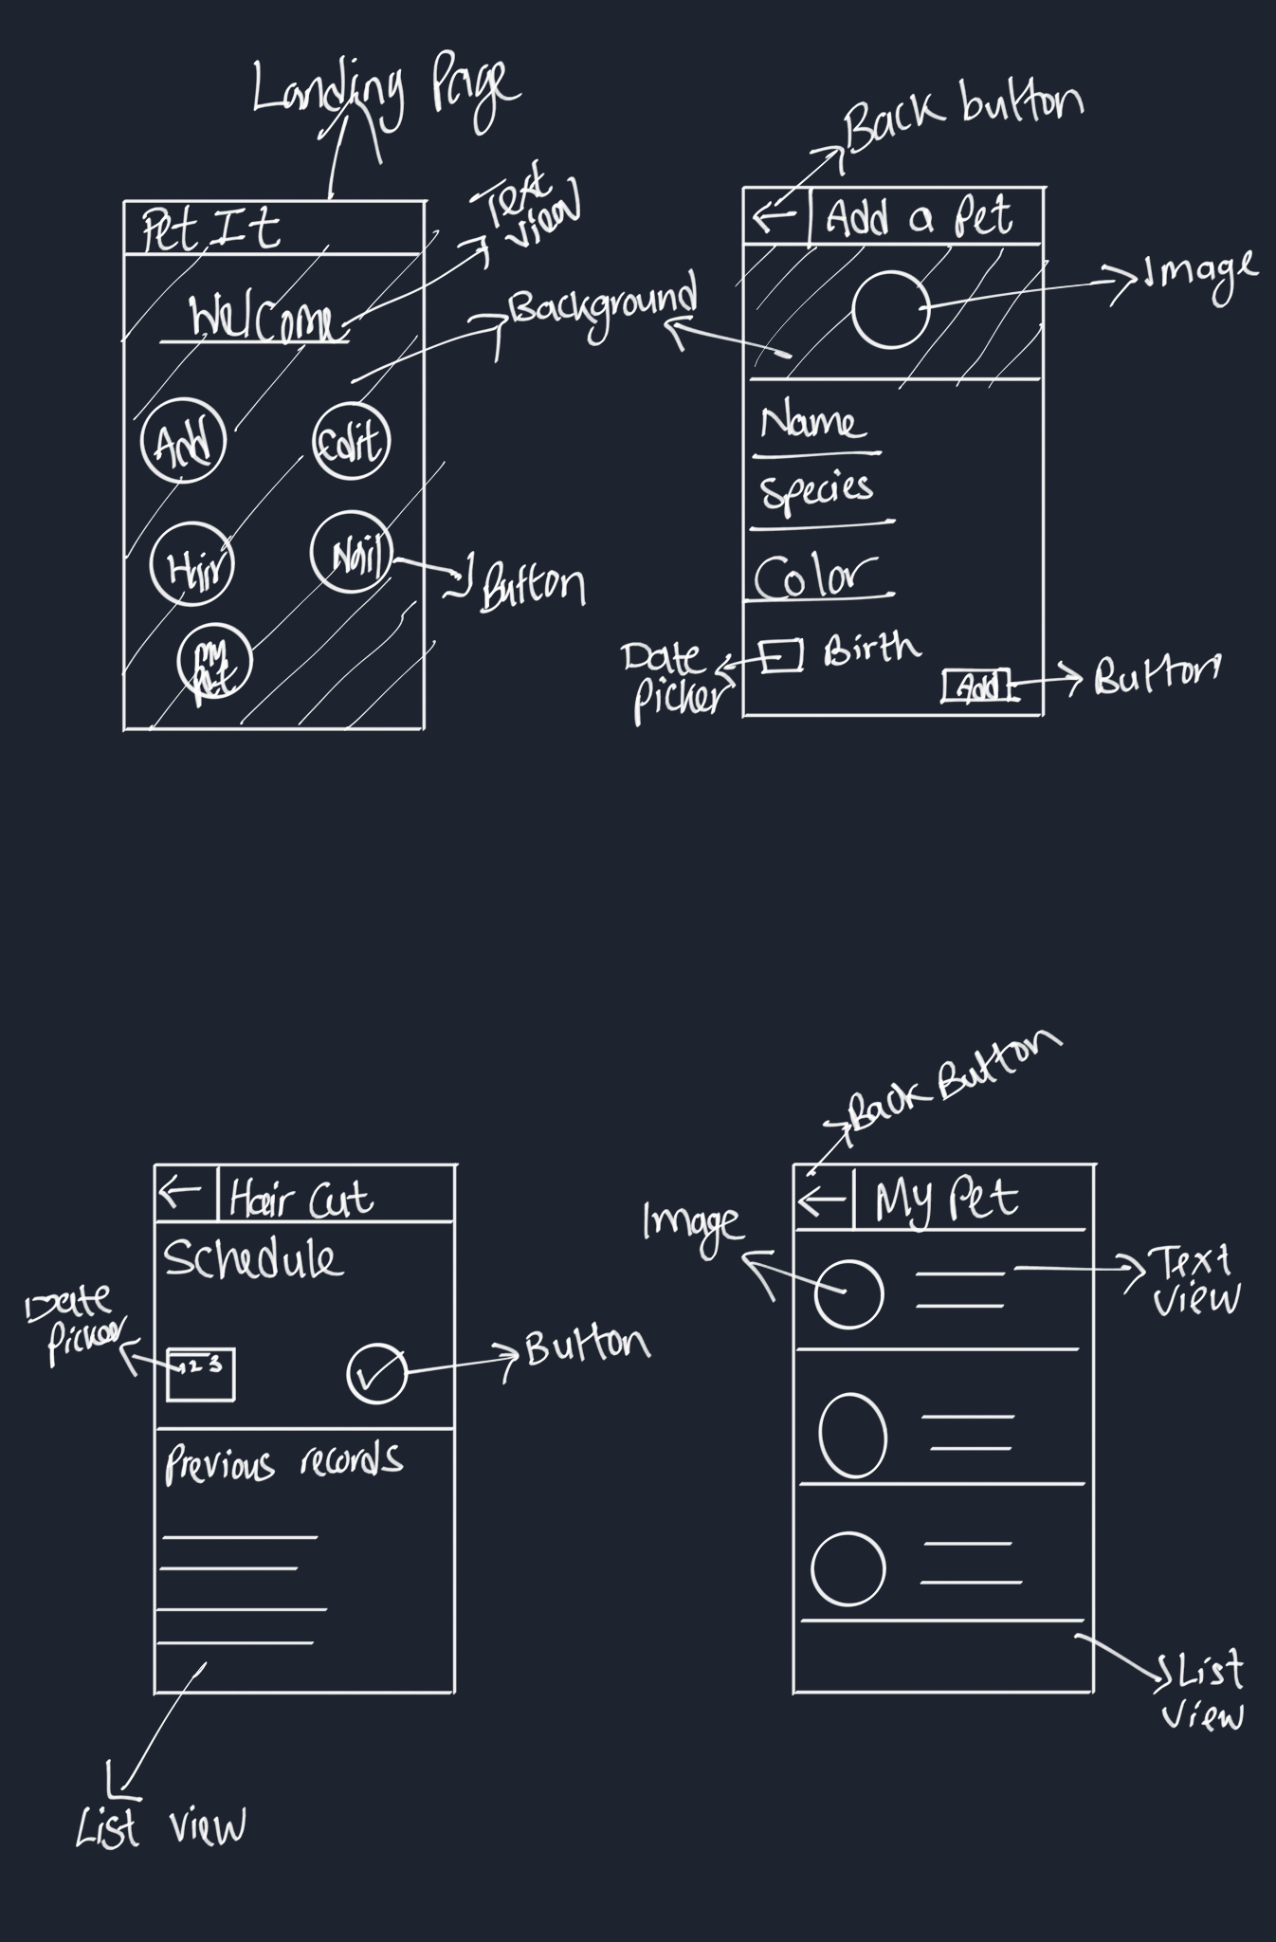 Landing Page
Pet It
Text
view
Welcome
Background
Add
Edit
Hair
Nail
Button
My
Pet
Back button
Add a Pet
Image
Name
Species
Color
Date
Picker
Birth
Add
Button
Hair Cut
Schedule
Date
Picker
1 2 3
Button
Previous records
List view
Back Button
My Pet
Image
Text
view
List
view